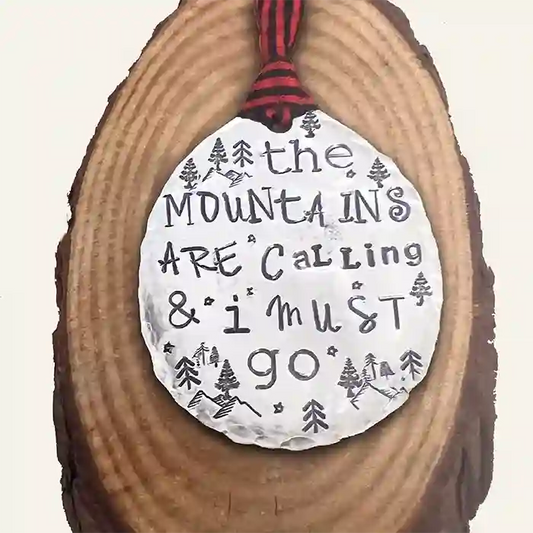 the
MOUNtAINS
ARE CaLLing
& i MUST
go